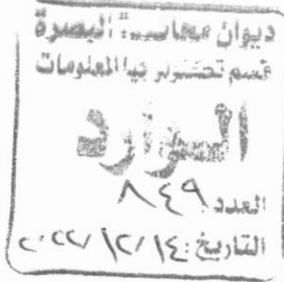 ديوان محاسبة البصرة
قسم تكنولوجيا المعلومات
الوارد
العدد: ٨٤٩
التاريخ: ١٤/ ١٢/ ٢٠٢٢